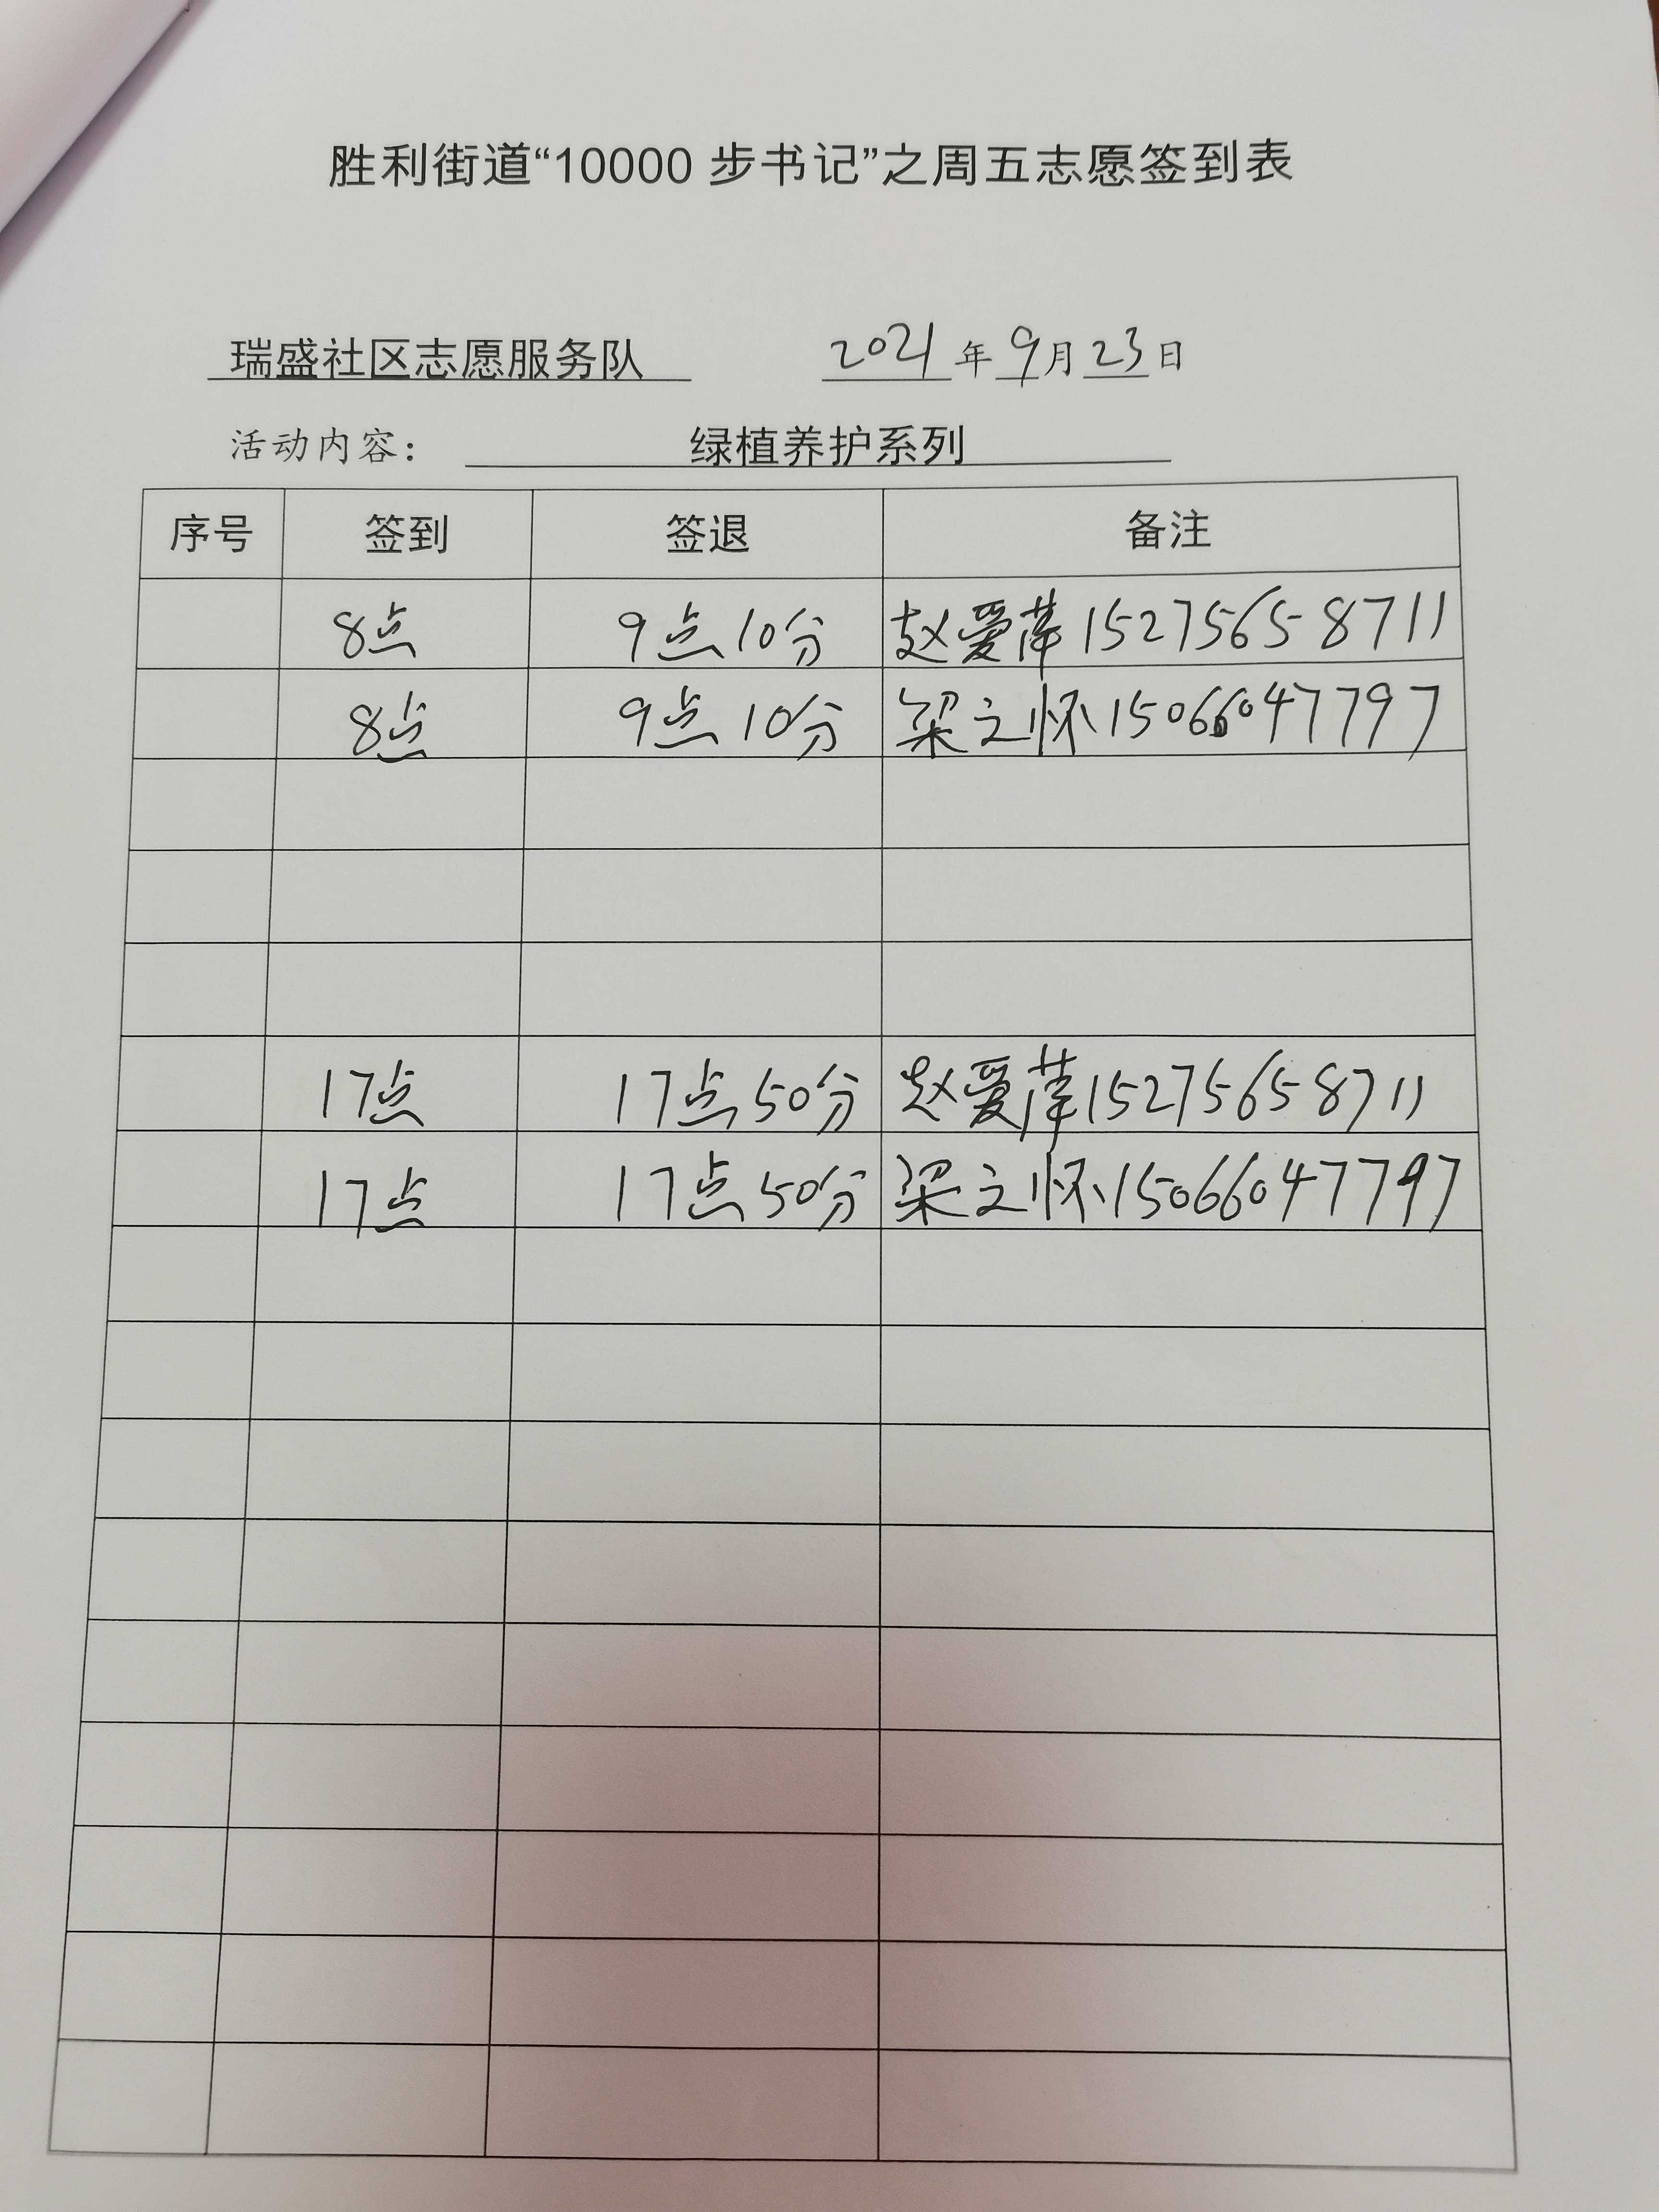 胜利街道“10000 步书记”之周五志愿签到表
瑞盛社区志愿服务队 2021 年 9 月 23 日
活动内容： 绿植养护系列
序号 签到 签退 备注
8点 9点10分 赵爱萍 15275658711
8点 9点10分 梁之怀 15066047797
17点 17点50分 赵爱萍 15275658711
17点 17点50分 梁之怀 15066047797